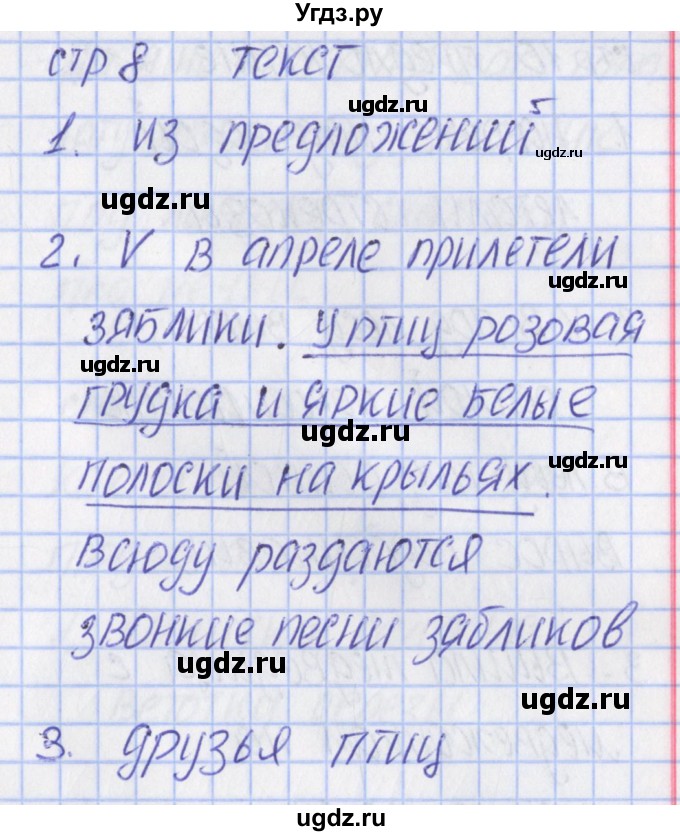 Угдз.ру
стр 8 текст
ugdz.ru
1. из предложений 5
ugdz.ru
ugdz.ru
2. V в апреле прилетели
ugdz.ru
зяблики. У птиц розовая
ugdz.ru
грудка и яркие белые
ugdz.ru
полоски на крыльях.
ugdz.ru
всюду раздаются
звонкие песни зябликов
ugdz.ru
ugdz.ru
3. друзья птиц
ugdz.ru